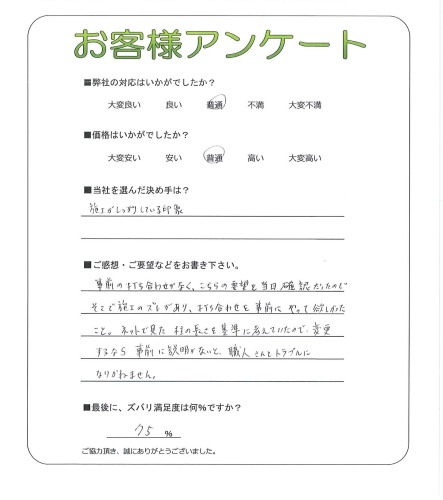 お客様アンケート
■弊社の対応はいかがでしたか?
大変良い 良い 普通 不満 大変不満
■価格はいかがでしたか?
大変安い 安い 普通 高い 大変高い
■当社を選んだ決め手は?
施工がしっかりしている印象
■ご感想・ご要望などをお書き下さい。
事前の打ち合わせがなく、こちらの要望を当日確認だったので
そこで施工のズレがあり、打ち合わせを事前にやって欲しかった
こと。ネットで見た 材の長さを基準に考えていたので、変更
するなら 事前に説明がないと、職人さんとトラブルに
なりかねません。
■最後に、ズバリ満足度は何%ですか?
75 %
ご協力頂き、誠にありがとうございました。